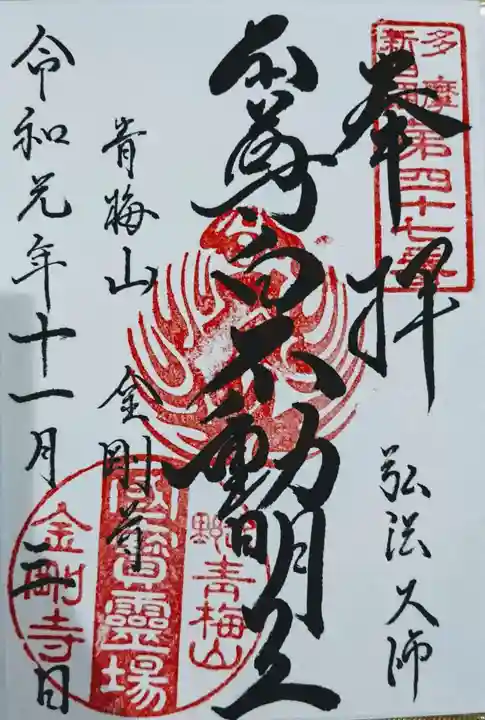 奉拝
弘法大師
本尊白不動明王
青梅山 金剛寺
令和元年十一月二日
多摩
新四国第四十七番
青梅山
霊場
金剛寺